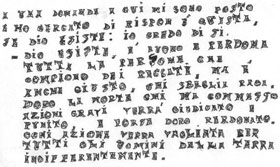 A UNA DOMANDA A CUI MI SONO POSTO
E HO CERCATO DI RISPON È QUESTA,
SE DIO ESISTE: IO CREDO DI SI.
- DIO ESISTE È BUONO E PERDONA
TUTTI LA PERSONA CHE
COMPIONO DEI PECCATI MA È
ANCHE GIUSTO, CHI SBAGLIA PAGA.
DOPO LA MORTE CHI HA COMMESSO
AZIONI GRAVI VERRÀ GIUDICATO
PUNITO E PERDONATO.
OGNI AZIONA VERRA VAGLIATA PER
TUTTI GLI UOMINI DELLA TARRA
INDIFFERENTEMENTE.